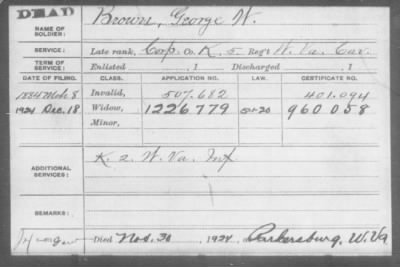 DEAD
NAME OF SOLDIER: Brown, George W.
SERVICE: Late rank, Corp. Co. K. 5 Reg't W. Va. Cav.
TERM OF SERVICE: Enlisted , 1 Discharged , 1
DATE OF FILING. CLASS. APPLICATION NO. LAW. CERTIFICATE NO.
1884 Mch 8 Invalid, 507.682 401.094
1924 Dec. 18 Widow, 1226779 960058
Minor,
ADDITIONAL SERVICES: K. 2 W. Va. Inf
REMARKS:
Died Nov. 30 1924, Parkersburg, W. Va